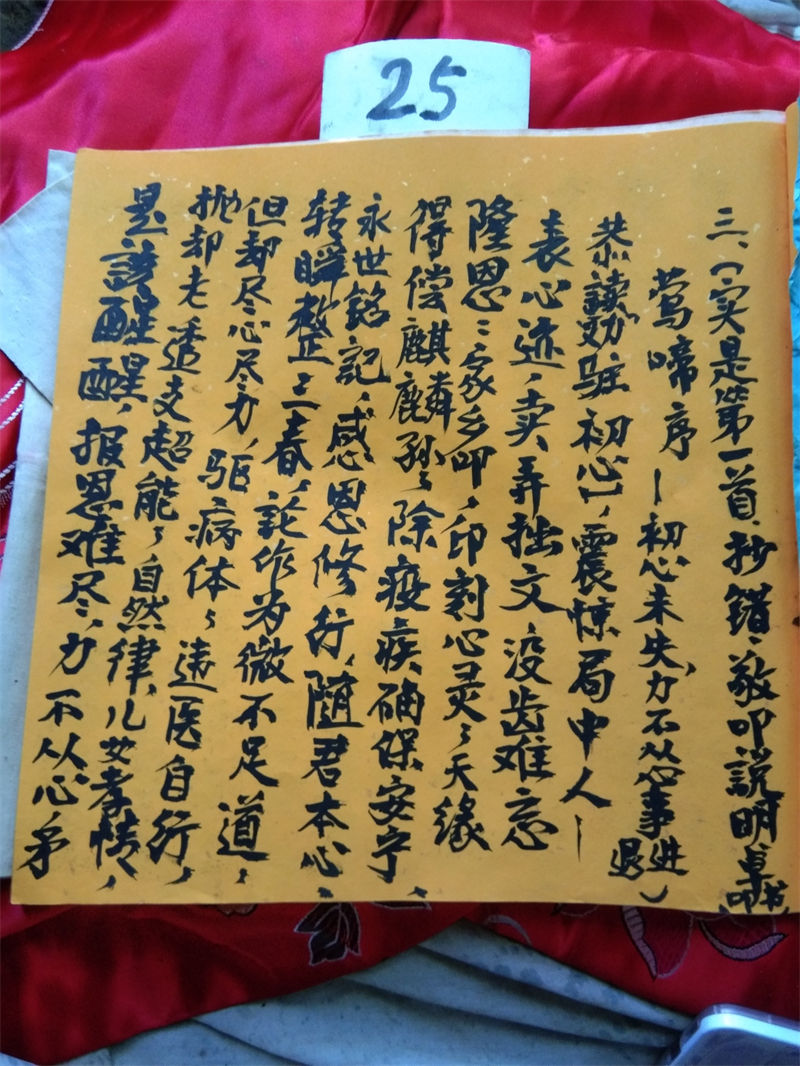 25
三、(实是第一首,抄错,敬叩说明卓
莺啼序—初心未失,力不从心事进退)
恭读劝驻初心,震惊局中人—
表心迹,卖弄拙文,没齿难忘
隆恩:家乡叩,印刻心灵,天缘
得偿麒麟孙,除疫疾确保安宁,
永世铭記,感恩修行,随君本心,
转瞬整三春,論作为微不足道,
但却尽心尽力,驱病体,违医自行,
抛却老透支超能,自然律,儿女孝情,
是該醒醒,报恩难尽,力不从心矛